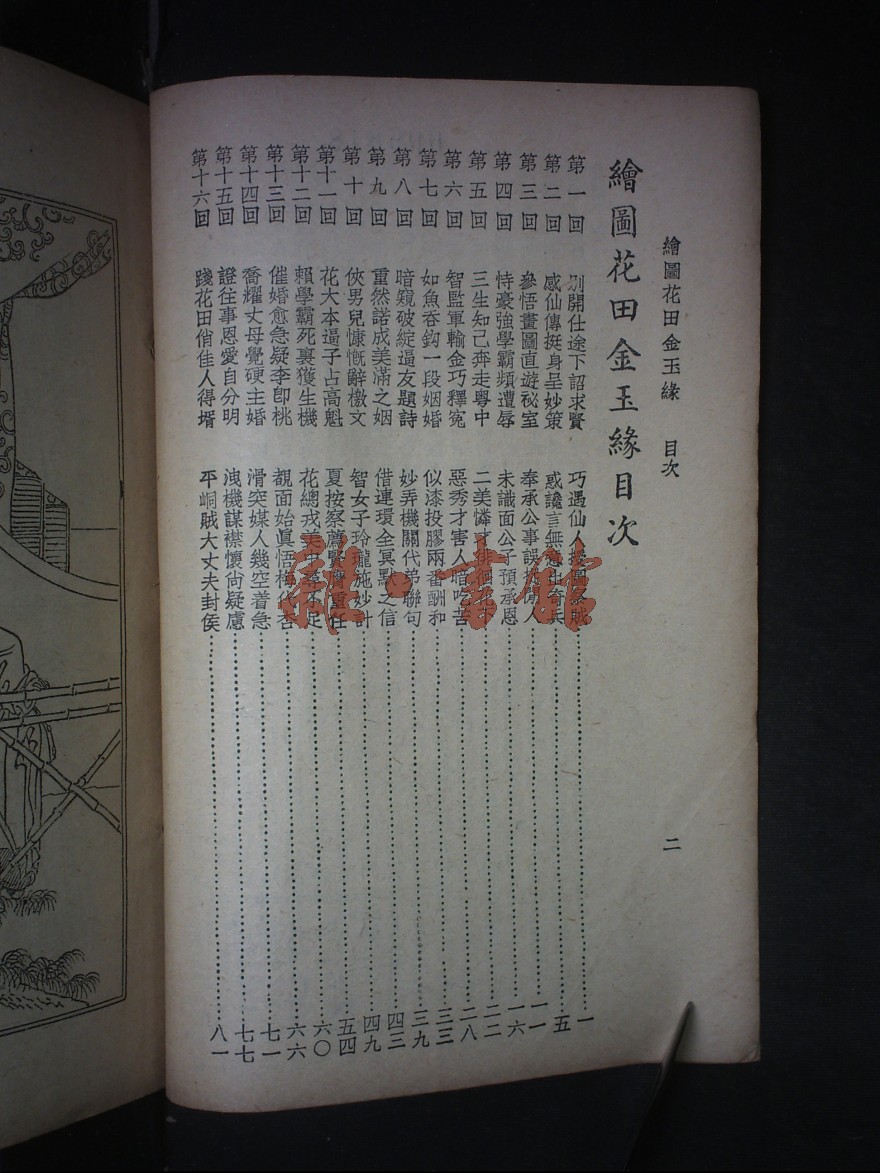 繪圖花田金玉緣 目次 二
繪圖花田金玉緣目次
第一回 別開仕途下詔求賢 巧遇仙人 賊 一
第二回 感仙傳挺身呈妙策 惑讒言無意出奇兵 五
第三回 參悟畫圖直遊祕室 奉承公事誤 人 一一
第四回 恃豪強學霸頻遭辱 未識面公子預承恩 一六
第五回 三生知己奔走粵中 二美憐才徘徊花下 二二
第六回 智監軍輸金巧釋冤 惡秀才害人暗吃苦 二八
第七回 如魚吞鈎一段姻婚 似漆投膠兩番酬和 三三
第八回 暗窺破綻逼友題詩 妙弄機關代弟聯句 三九
第九回 重然諾成美滿之姻 借連環全冥點之信 四三
第十回 俠男兒慷慨辭檄文 智女子玲瓏施妙計 四九
第十一回 花大本逼子占高魁 夏按察薦賢膺重任 五四
第十二回 賴學霸死裏獲生機 花總戎美中 不足 六〇
第十三回 催婚愈急疑李卽桃 覩面始眞悟梅代杏 六六
第十四回 喬耀丈母覺硬主婚 滑突媒人幾空着急 七一
第十五回 證往事恩愛自分明 洩機謀襟懷尙疑慮 七七
第十六回 踐花田俏佳人得壻 平峒賊大丈夫封侯 八一
雜·書館